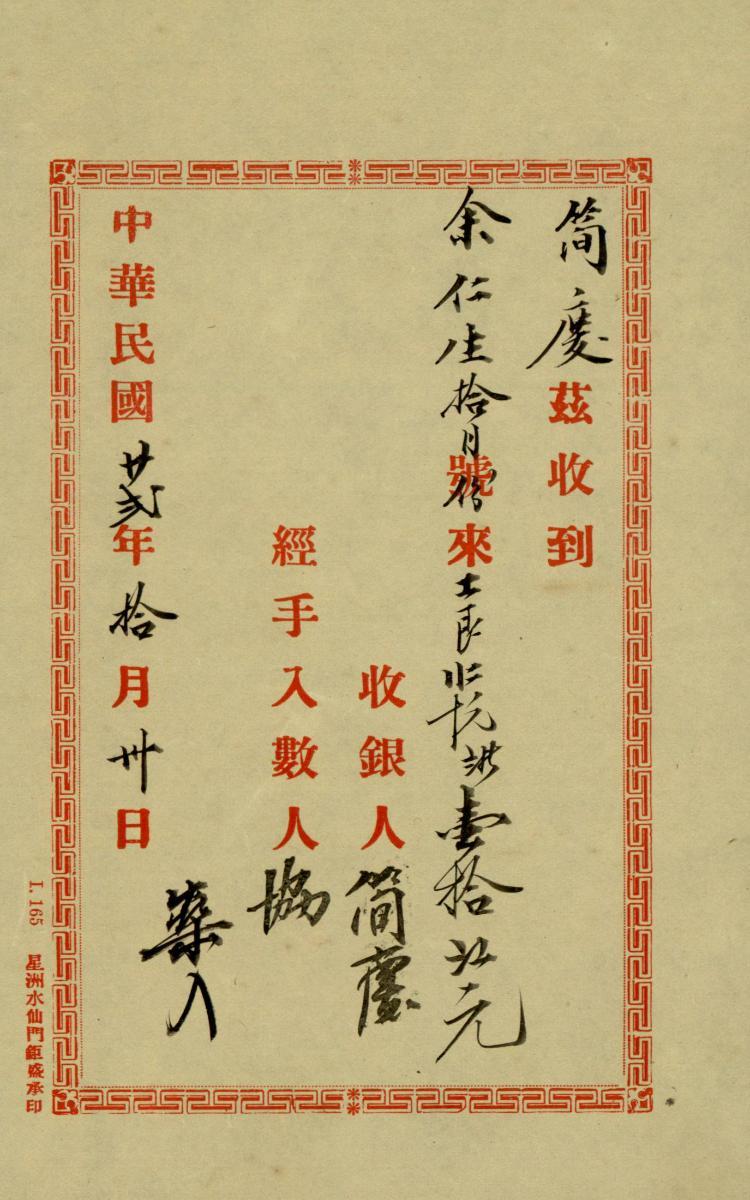 简慶茲收到
余仁生拾月份號來士良 壹拾 元
收銀人简慶
經手入數人協
藥入
中華民國廿弍年拾月卅日
I. 165 星洲水仙門鉅盛承印